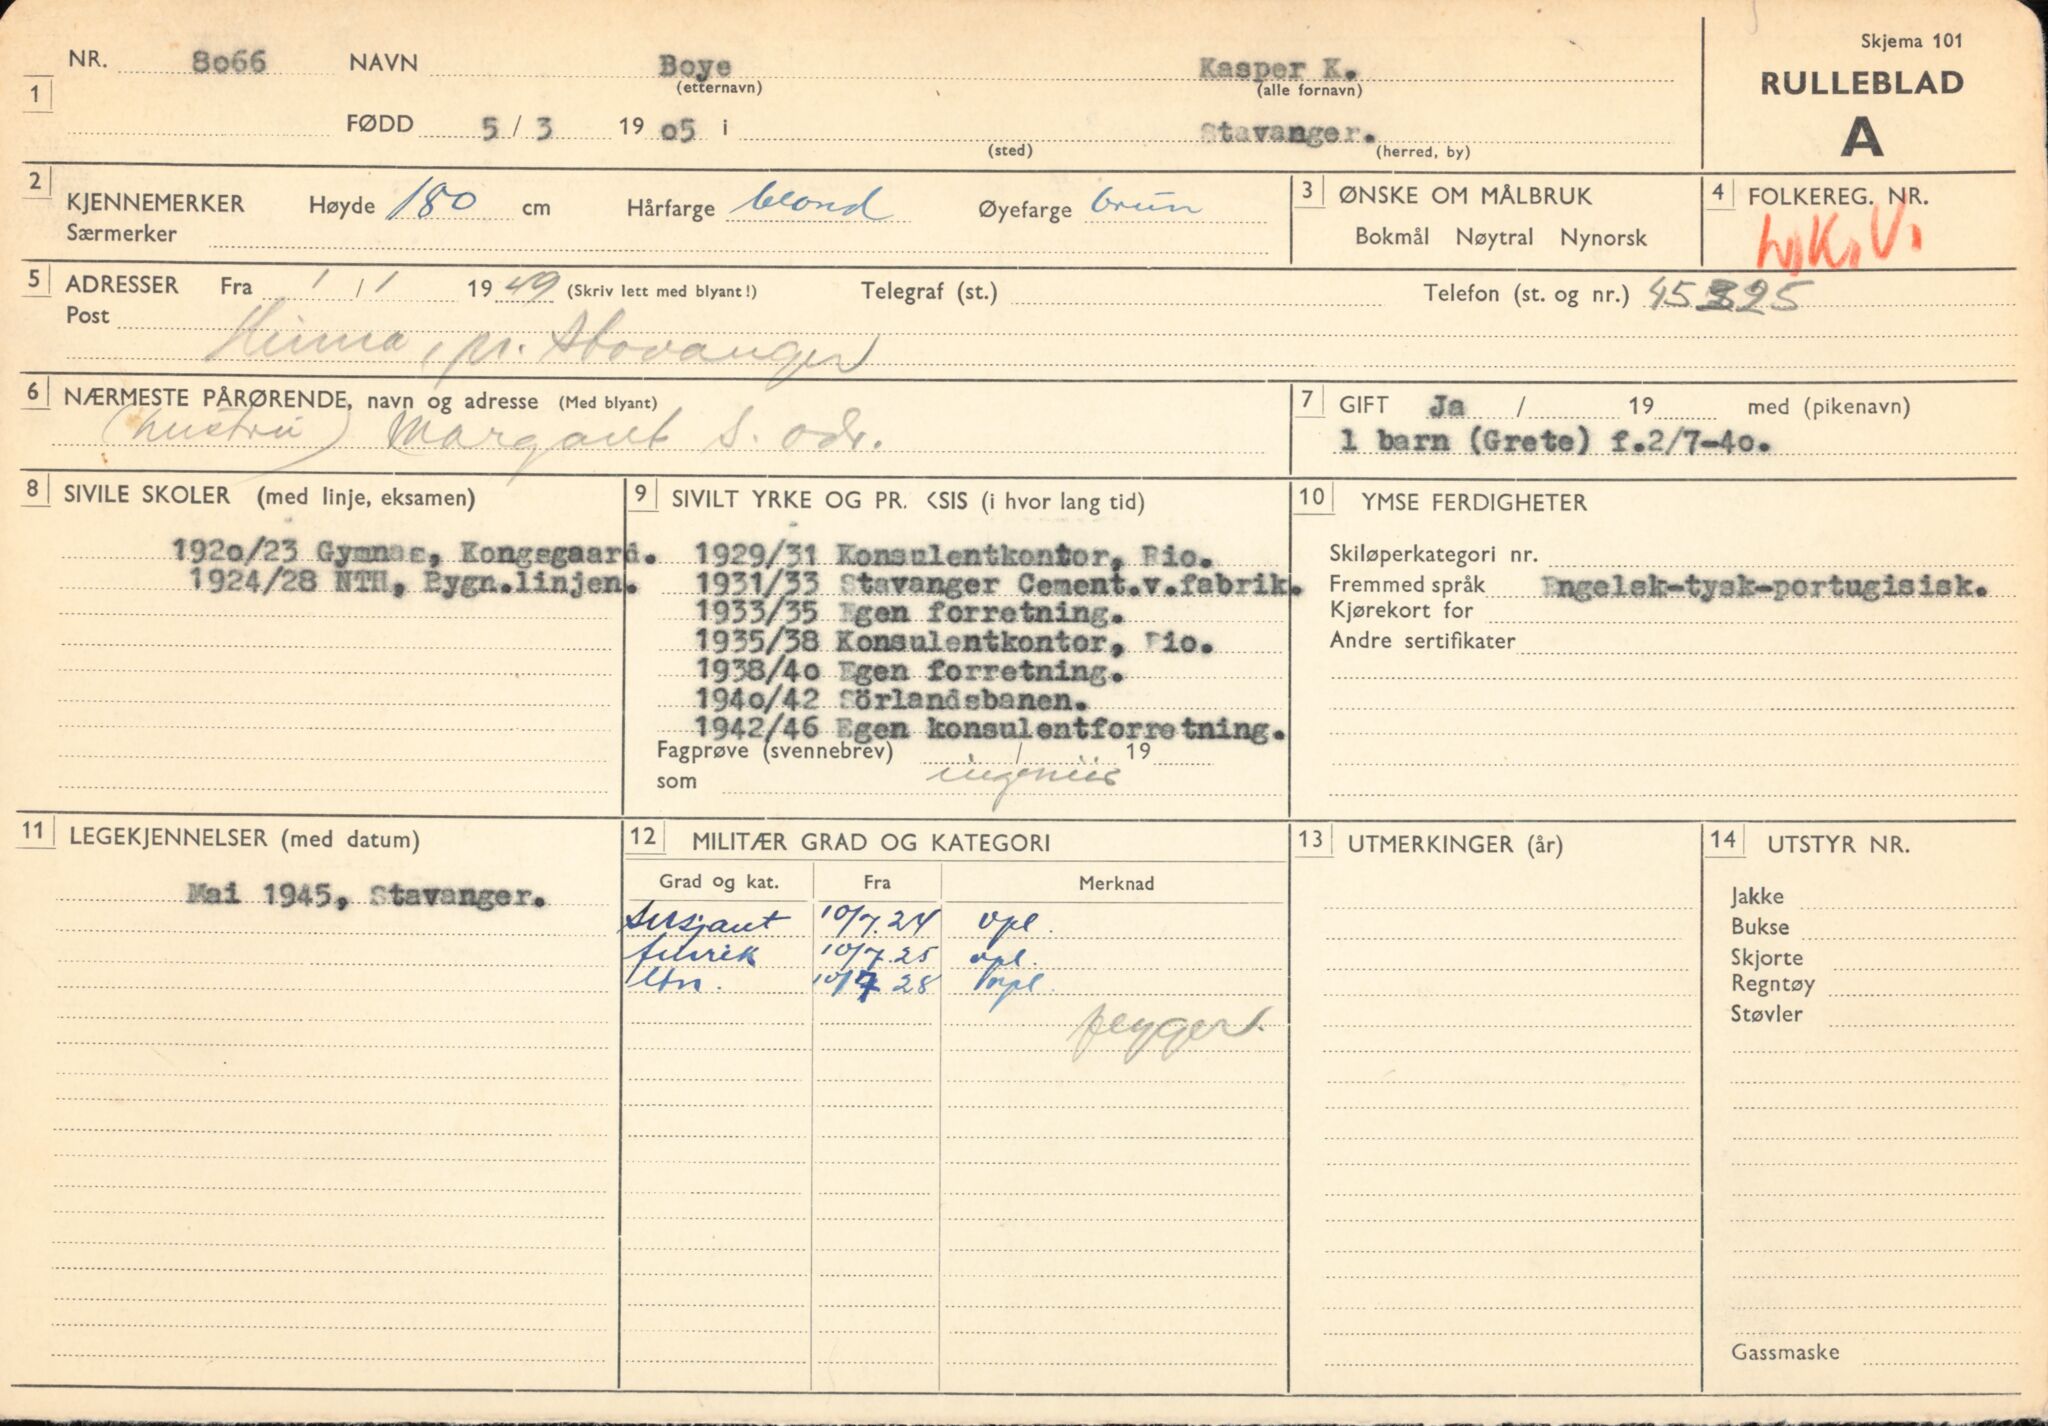 Skjema 101
RULLEBLAD
A
1 NR. 8o66 NAVN Boye Kasper K.
(etternavn) (alle fornavn)
FØDD 5 / 3 19 o5 i Stavanger.
(sted) (herred, by)
2 KJENNEMERKER Høyde 180 cm Hårfarge blond Øyefarge brun
Særmerker
3 ØNSKE OM MÅLBRUK
Bokmål Nøytral Nynorsk
4 FOLKEREG. NR.
L.K.V.
5 ADRESSER Fra 1 / 1 19 49 (Skriv lett med blyant!) Telegraf (st.) Telefon (st. og nr.) 45325
Post
Hinna, pr. Stavanger
6 NÆRMESTE PÅRØRENDE, navn og adresse (Med blyant)
(hustru) Margaret s. adr.
7 GIFT Ja / 19 med (pikenavn)
1 barn (Grete) f.2/7-4o.
8 SIVILE SKOLER (med linje, eksamen)
192o/23 Gymnas, Kongsgaard.
1924/28 NTH, Bygn.linjen.
9 SIVILT YRKE OG PR. KSIS (i hvor lang tid)
1929/31 Konsulentkontor, Rio.
1931/33 Stavanger Cement.v.fabrik.
1933/35 Egen forretning.
1935/38 Konsulentkontor, Rio.
1938/4o Egen forretning.
194o/42 Sörlandsbanen.
1942/46 Egen konsulentforretning.
Fagprøve (svennebrev) / 19
som ingeniør
10 YMSE FERDIGHETER
Skiløperkategori nr.
Fremmed språk Engelsk-tysk-portugisisk.
Kjørekort for
Andre sertifikater
11 LEGEKJENNELSER (med datum)
Mai 1945, Stavanger.
12 MILITÆR GRAD OG KATEGORI
Grad og kat. Fra Merknad
Sersjant 10/7.24 vpl.
fenrik 10/7.25 vpl.
ltn. 10/7 28 vpl.
flyger.
13 UTMERKINGER (år)
14 UTSTYR NR.
Jakke
Bukse
Skjorte
Regntøy
Støvler
Gassmaske